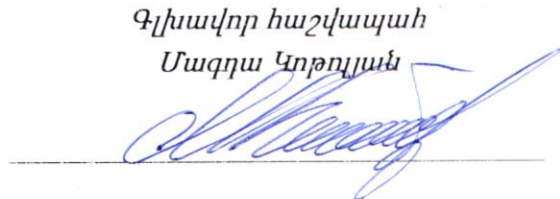 Գլխավոր հաշվապահ
Մագդա Կոթոլյան